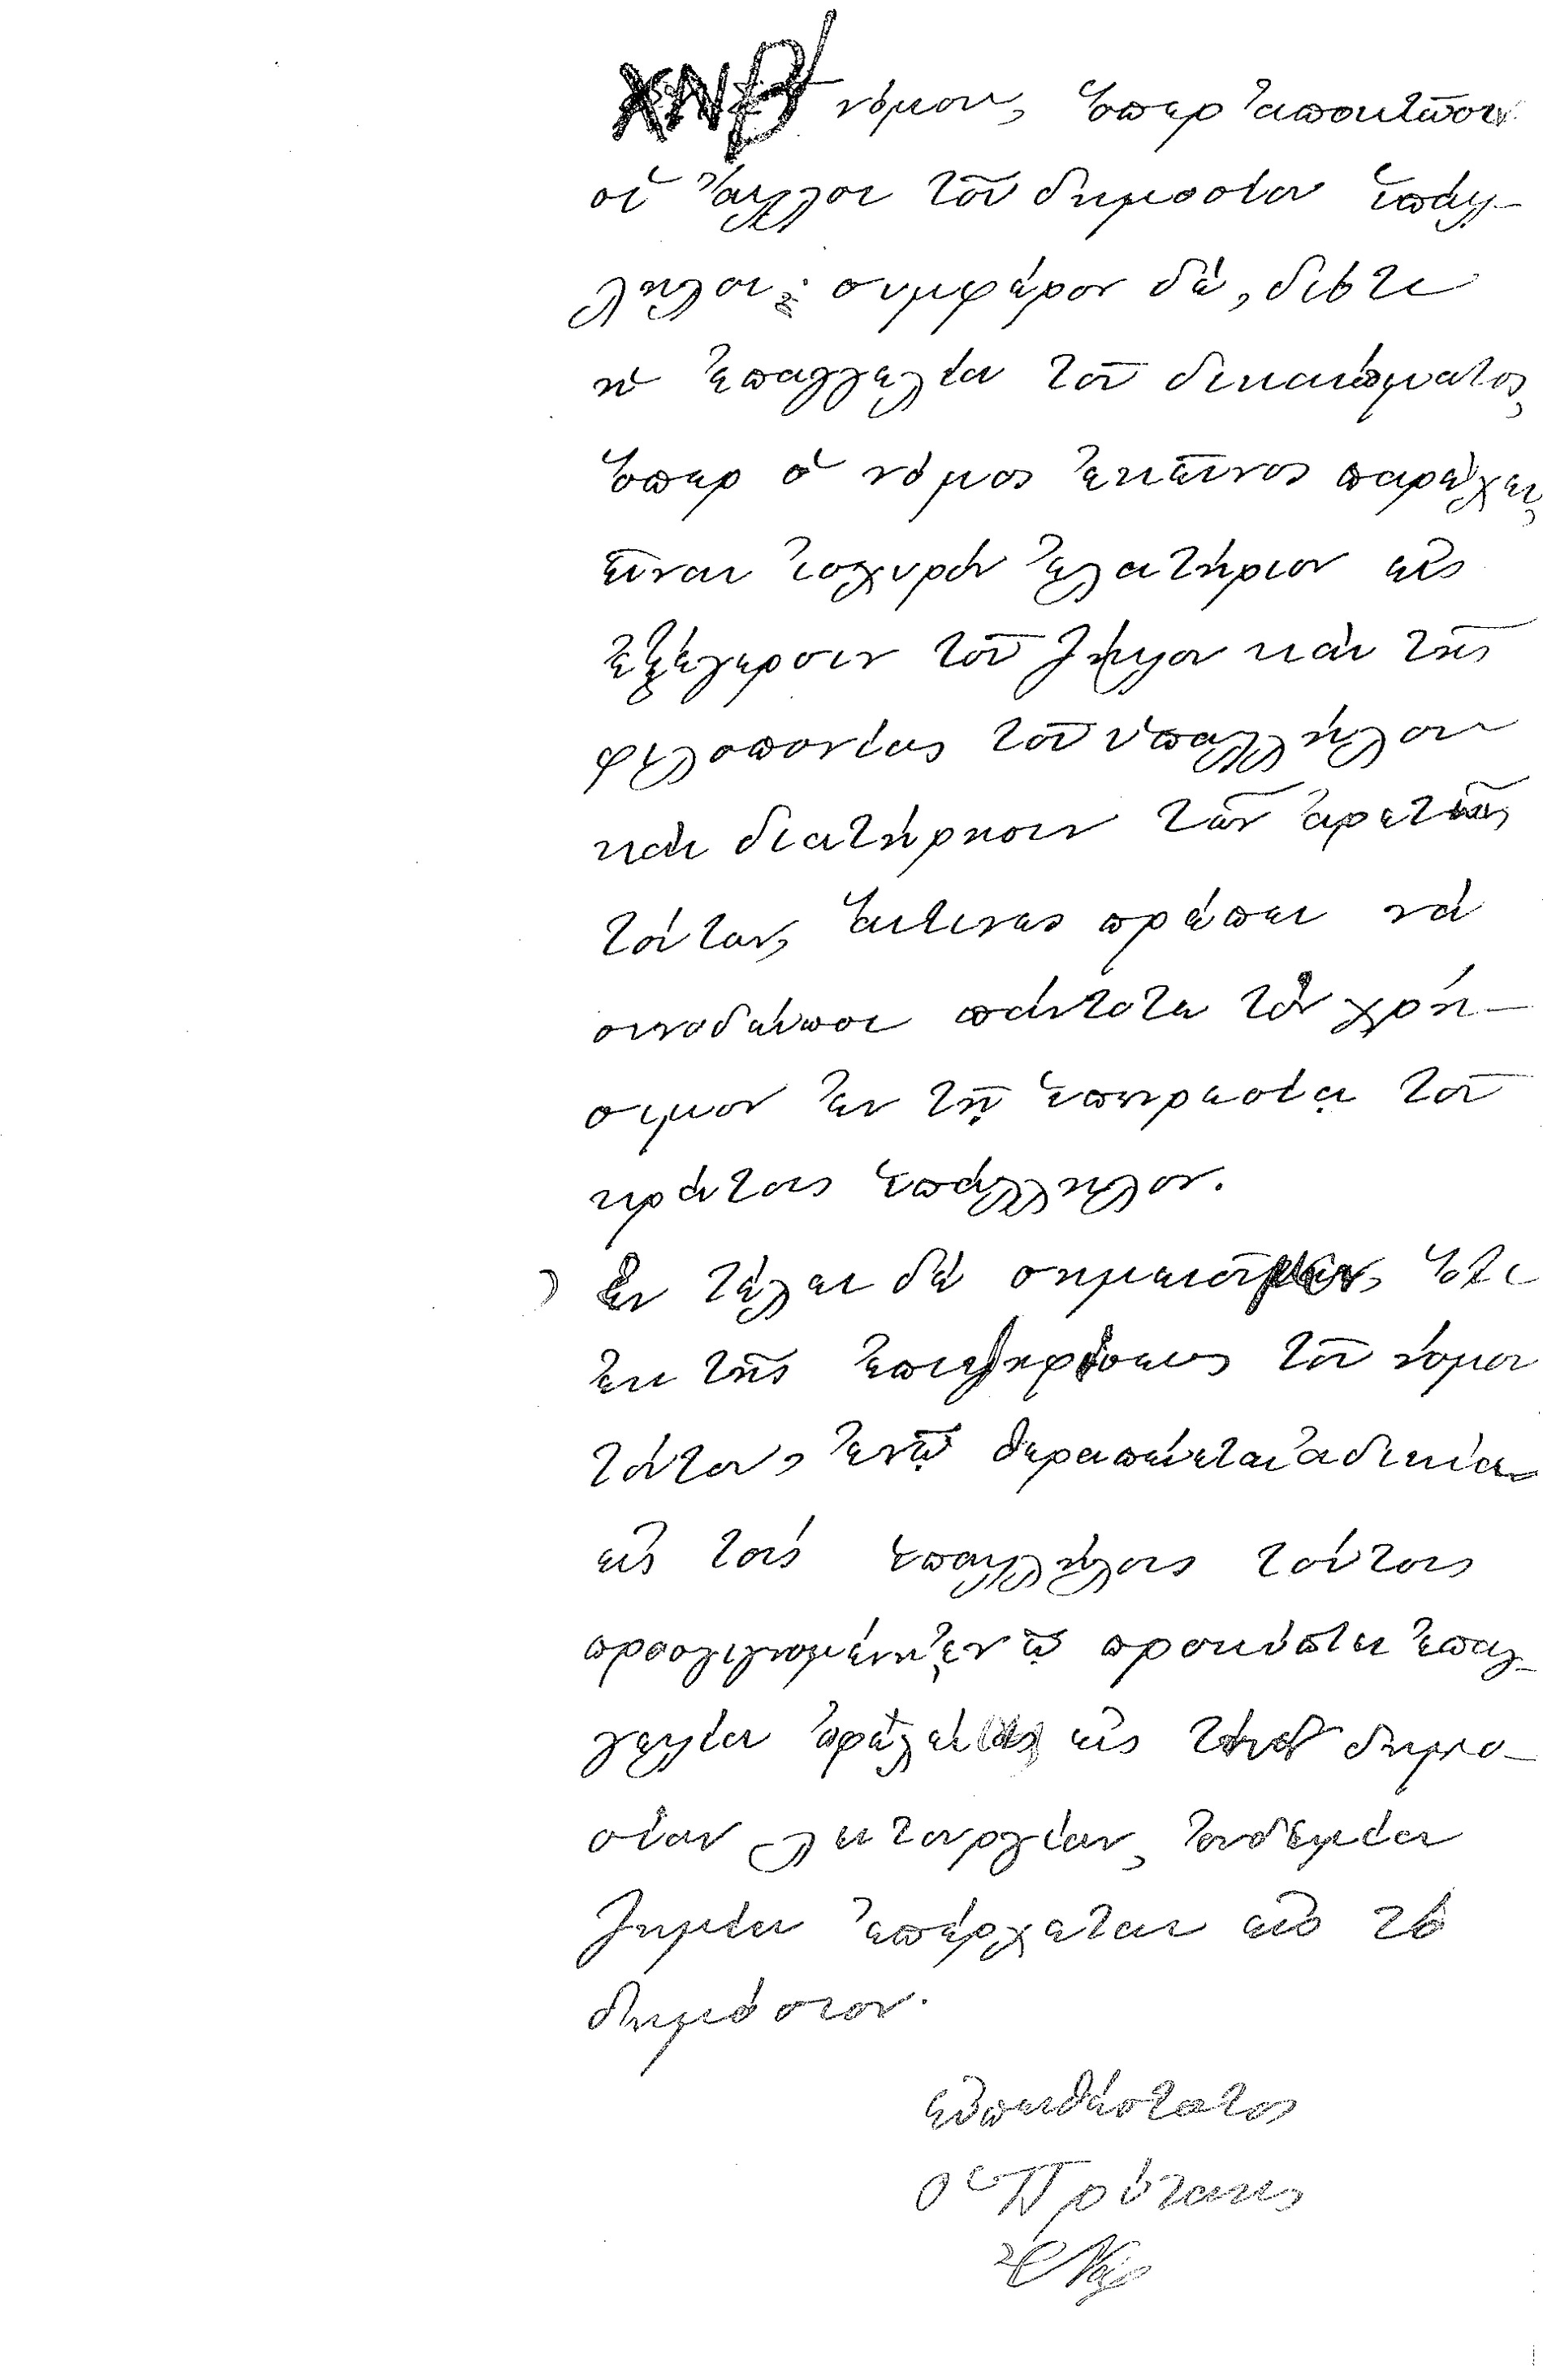 ΧΝΒ′ νόμου, ὅπερ ἀπαιτῶσιν
οἱ ἄλλοι τοῦ δημοσίου ὑπάλ-
ληλοι· συμφέρον δέ, διότι
ἡ ἐπαγγελία τοῦ δικαιώματος,
ὅπερ ὁ νόμος ἐκεῖνος παρέχει,
εἶναι ἰσχυρὸν ἐλατήριον εἰς
ἐξέγερσιν τοῦ ζήλου καὶ τῆς
φιλοπονίας τοῦ ὑπαλλήλου
καὶ διατήρησιν τῶν ἀρετῶν
τούτων, αἵτινες πρέπει νὰ
συνοδεύωσι πάντοτε τὸν χρή-
σιμον ἐν τῇ ὑπηρεσίᾳ τοῦ
κράτους ὑπάλληλον.
Ἐν τέλει δὲ σημειοῦμεν, ὅτι
ἐκ τῆς ἐπιψηφίσεως τοῦ νόμου
τούτου, ἐνῷ θεραπεύεται ἀδικία
εἰς τοὺς ὑπαλλήλους τούτους
προσγιγνομένη, ἐν ᾧ προκύπτει ἐπαγ-
γελία ὠφελείας εἰς τὴν δημο-
σίαν λειτουργίαν, οὐδεμία
ζημία ἐπέρχεται εἰς τὸ
δημόσιον.
εὐπειθέστατος
ὁ Πρύτανις